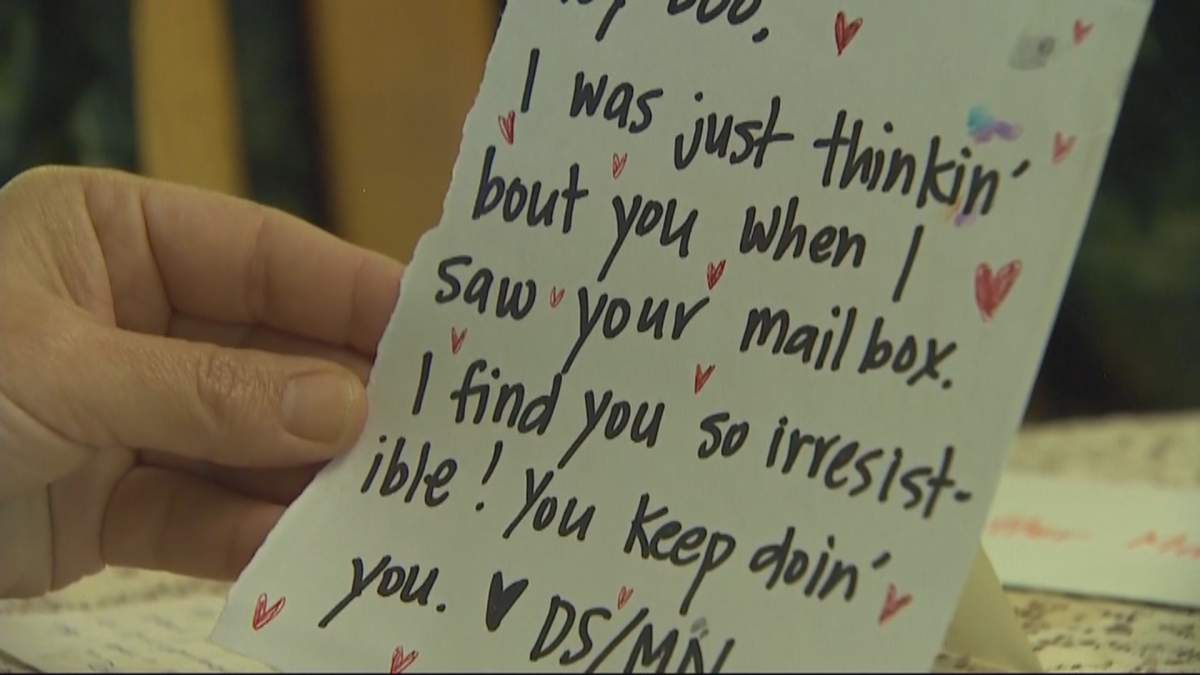 boo.
I was just thinkin'
bout you when I
saw your mailbox.
I find you so irresist-
ible! You keep doin'
you. ♥ DS/MN